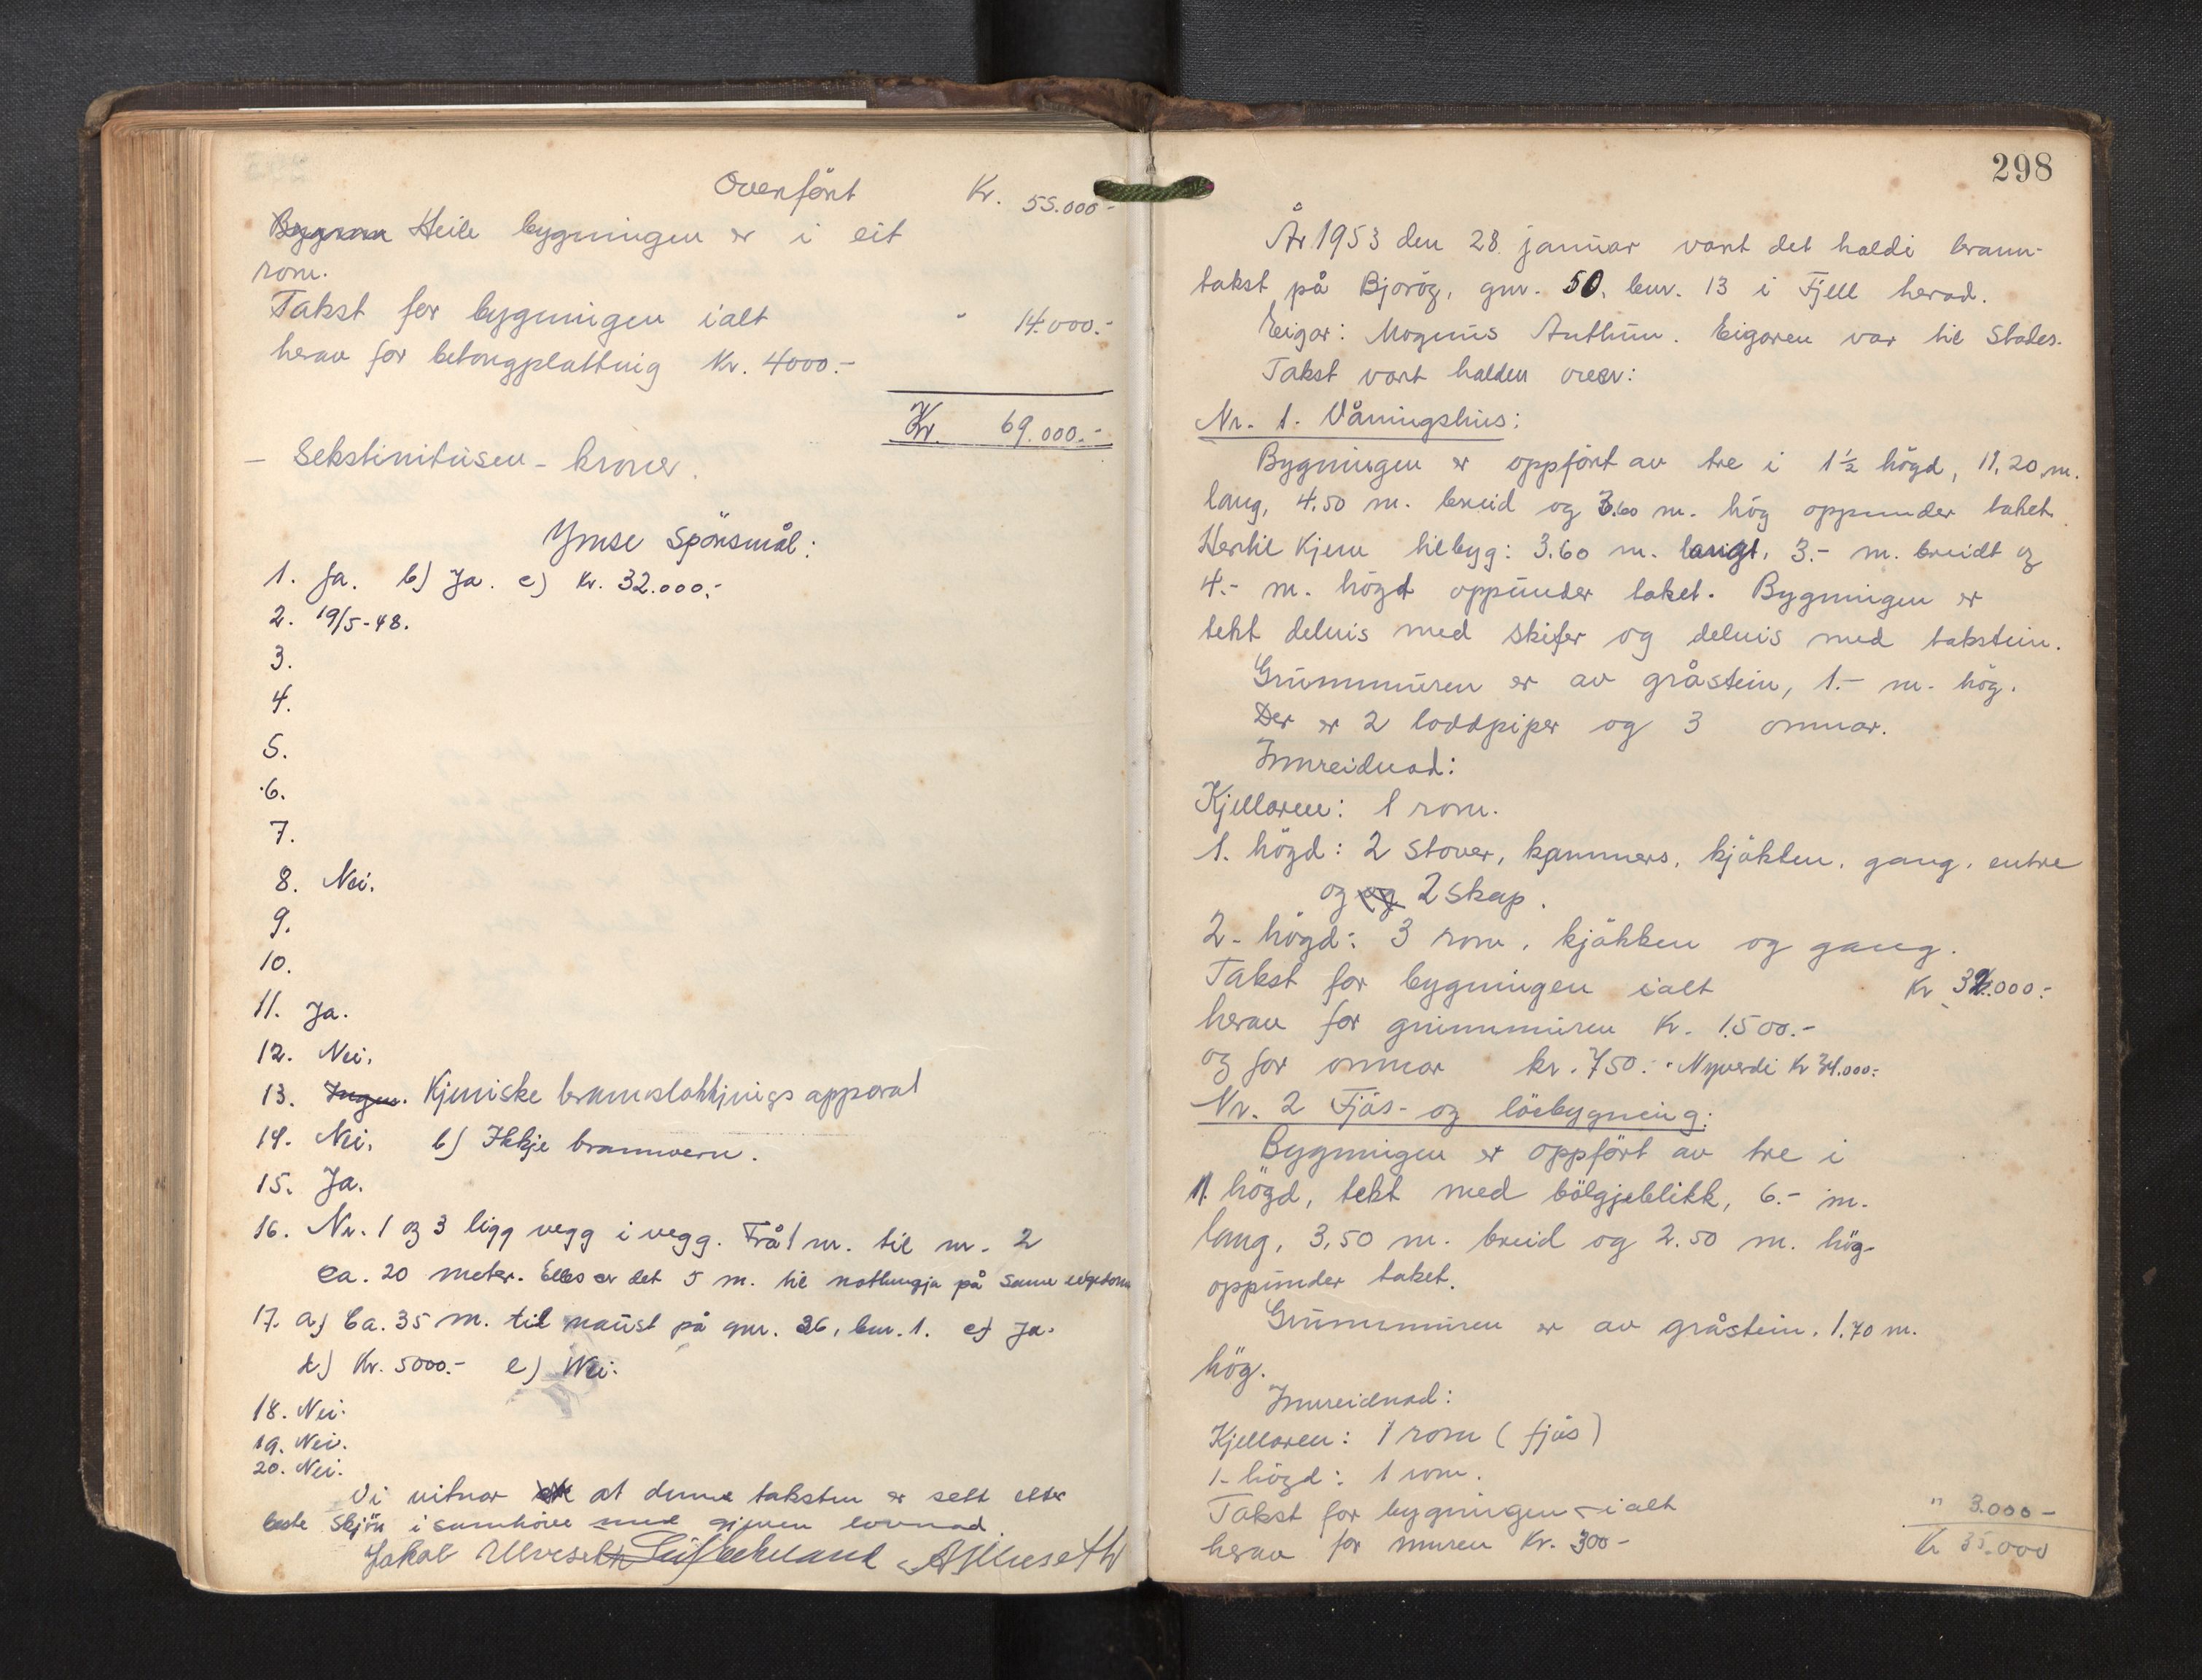 Overfört Kr. 55.000-
Heile bygningen er i eit
rom.
Takst for bygningen ialt " 14.000.-
herav for betongplattnig Kr. 4000.-
Kr. 69.000.-
- Sekstinitusen - kroner.
Ymse Spörsmål:
1. Ja. b) Ja. c) Kr. 32.000.-
2. 19/5-48.
3.
4.
5.
6.
7.
8. Nei.
9.
10.
11. Ja.
12. Nei.
13. Ingen. Kjemiske brannslokkjnigs apparat
14. Nei. b) Ikkje brannvern.
15. Ja.
16. Nr. 1 og 3 ligg vegg i vegg. Frå 1 nr. til nr. 2
ca. 20 meter. Elles er det 5 m. til notbungja på same eigedom
17. a) Ca. 35 m. til naust på gnr. 36, bnr. 1. c) Ja.
d) Kr. 5000.- e) Nei.
18. Nei.
19. Nei.
20. Nei.
Vi vitnar at denne taksten er sett etter
beste skjön i samhöve med gjeven lovnad.
Jakob Ulveseth
298
År 1953 den 28. januar vart det haldi brann-
takst på Bjoröy, gnr. 50, bnr. 13 i Fjell herad.
Eigar: Magnus Anthun. Eigaren var til Stades.
Takst vart halden over:
Nr. 1. Våningshus:
Bygningen er oppfört av tre i 1½ högd, 11,20 m.
lang, 4.50 m. breid og 3.60 m. hög oppunder taket.
Hertil kjem tilbyg: 3.60 m. langt, 3.- m. breidt og
4.- m. högd oppunder taket. Bygningen er
tekt delvis med skifer og delvis med takstein.
Grunnmuren er av gråstein, 1.- m. hög.
Der er 2 loddpiper og 3 omnar.
Innreidnad:
Kjellaren: 1 rom.
1. högd: 2 stover, kammers, kjökken, gang, entre
og og 2 skap.
2. högd: 3 rom, kjökken og gang.
Takst for bygningen ialt Kr 32.000.-
herav for grunnmuren Kr. 1.500.-
og for omnar kr. 750.- Nyverdi Kr 34.000.-
Nr. 2 Fjös- og löebygning:
Bygningen er oppfört av tre i
1. högd, tekt med bölgjeblikk, 6.- m.
lang, 3,50 m. breid og 2.50 m. hög
oppunder taket.
Grunnmuren er av gråstein, 1.70 m.
hög.
Innreidnad:
Kjellaren: 1 rom (fjös)
1. högd: 1 rom.
Takst for bygningen ialt " 3.000-
herav for muren Kr. 300- Kr 35.000